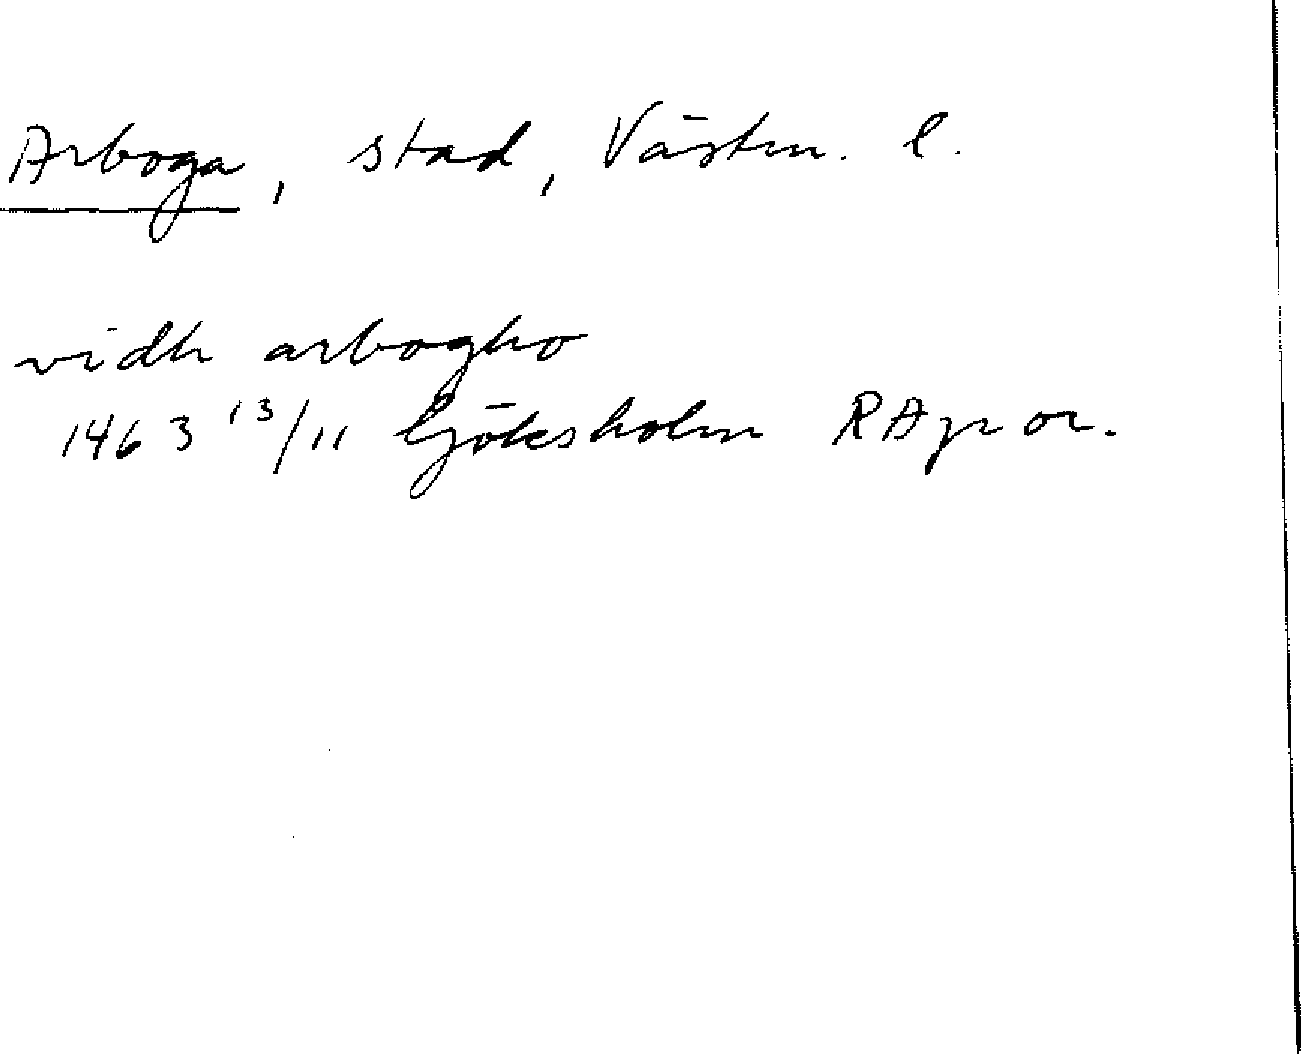 Arboga, stad, Västm. l.
vidh arbogho
1463 13/11 Göksholm RAp or.